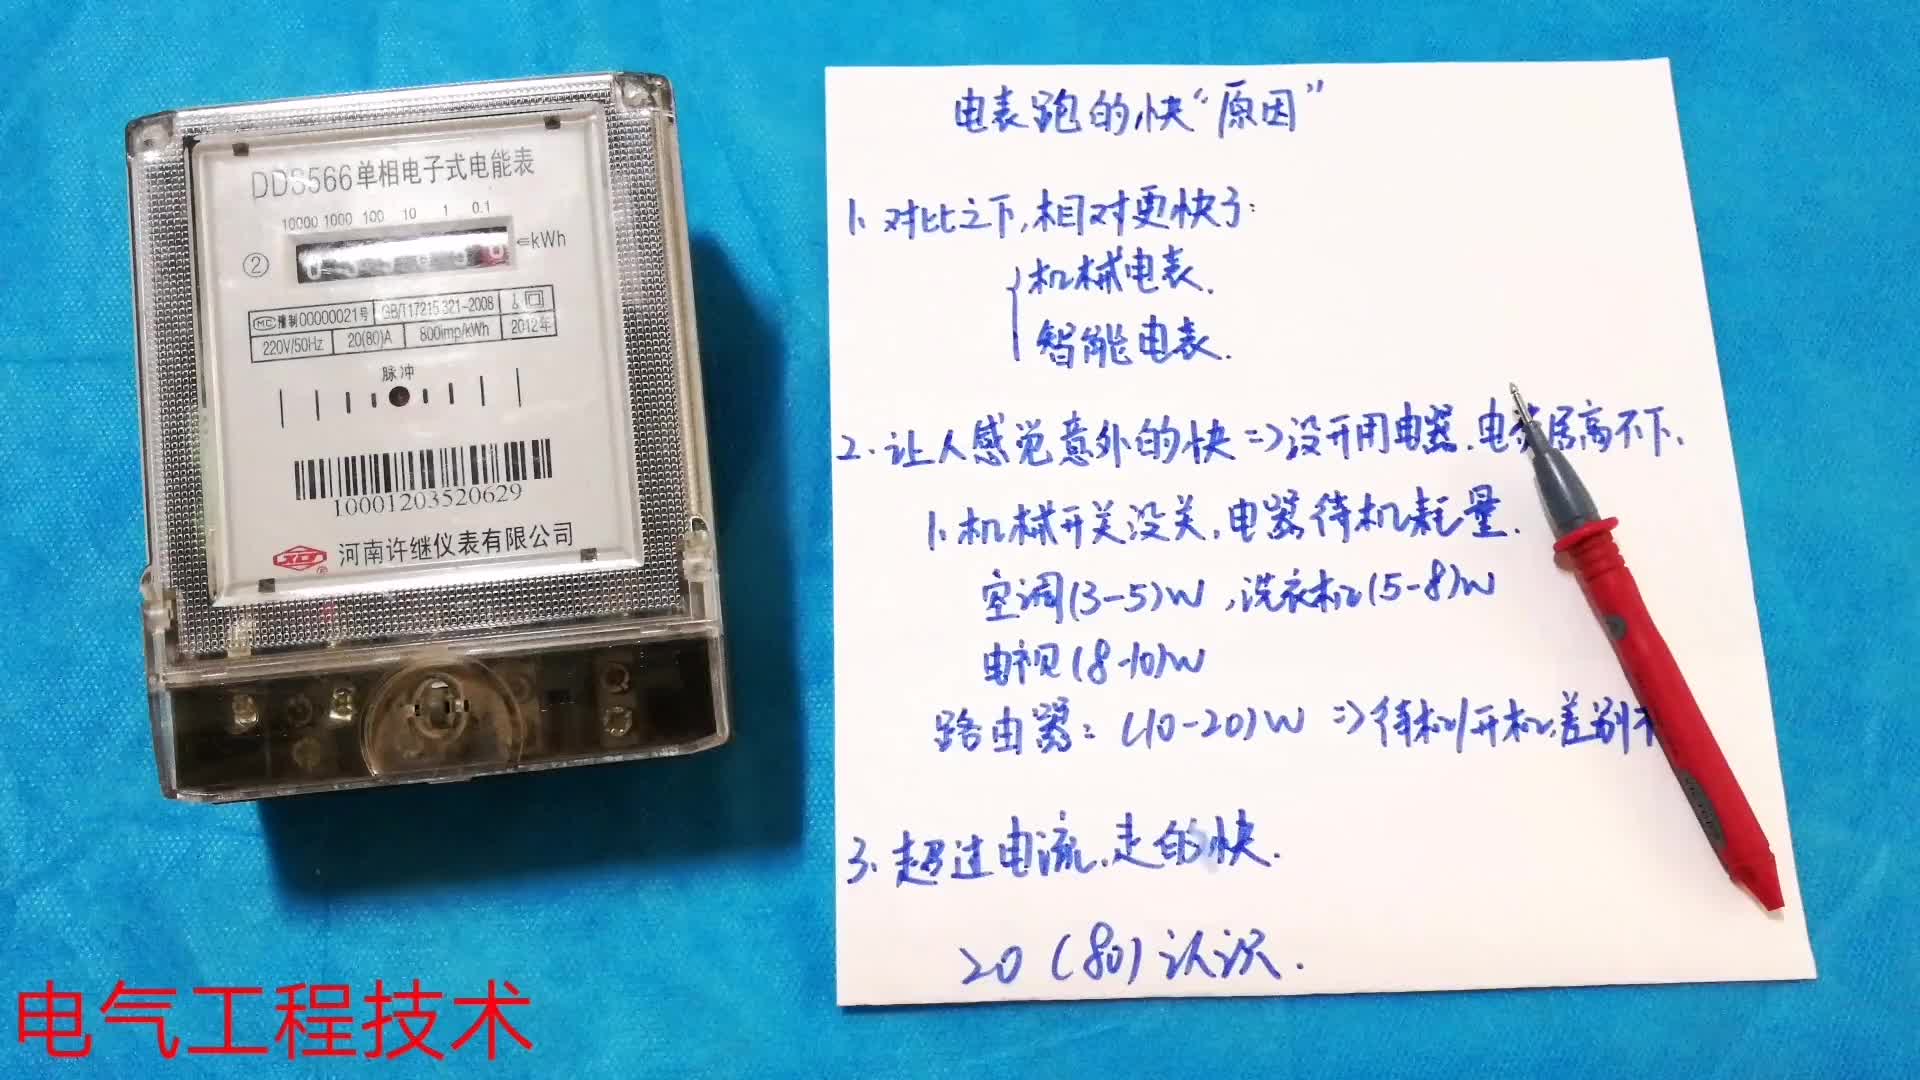 DDS566单相电子式电能表
10000 1000 100 10 1 0.1
② ⇐kWh
MC 豫制00000021号 GB/T17215.321-2008
220V/50Hz 20(80)A 800imp/kWh 2012年
脉冲
10001203520629
河南许继仪表有限公司
电表跑的快“原因”
1、对比之下,相对更快了:
机械电表.
智能电表.
2.让人感觉意外的快=>没开用电器.电费居高不下、
1、机械开关没关,电器待机耗量.
空调(3-5)W,洗衣机(5-8)W
电视(8-10)W
路由器:(10-20)W =>待机/开机,差别不
3、超过电流,走的快.
20(80)认识.
电气工程技术